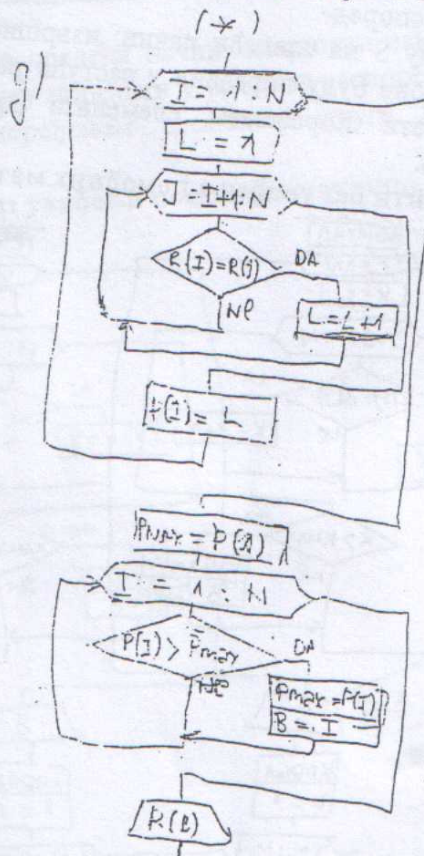 (*)
g)
I = 1:N
L = 1
J = I+1:N
R(I)=R(J)
DA
NE
L = L+1
P(I) = L
Pmax = P(1)
P(I) > Pmax
DA
NE
Pmax = P(I)
B = I
R(B)